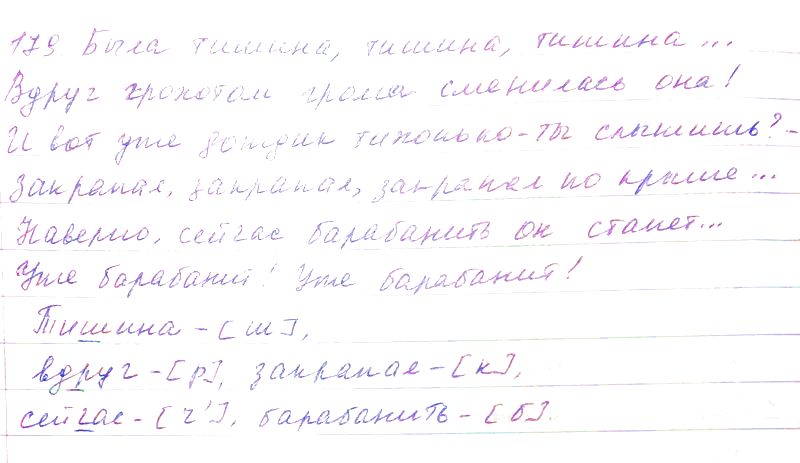 179 Была тишина, тишина, тишина...
Вдруг грохотом грома сменилась она!
И вот уже дождик тихонько-ты слышишь?-
Закрапал, закрапал, закрапал по крыше...
Наверно, сейчас барабанить он станет...
Уже барабанит! Уже барабанит!
Тишина-[ш],
вдруг-[р], закрапал-[к],
сейчас-[ч'], барабанить-[б].